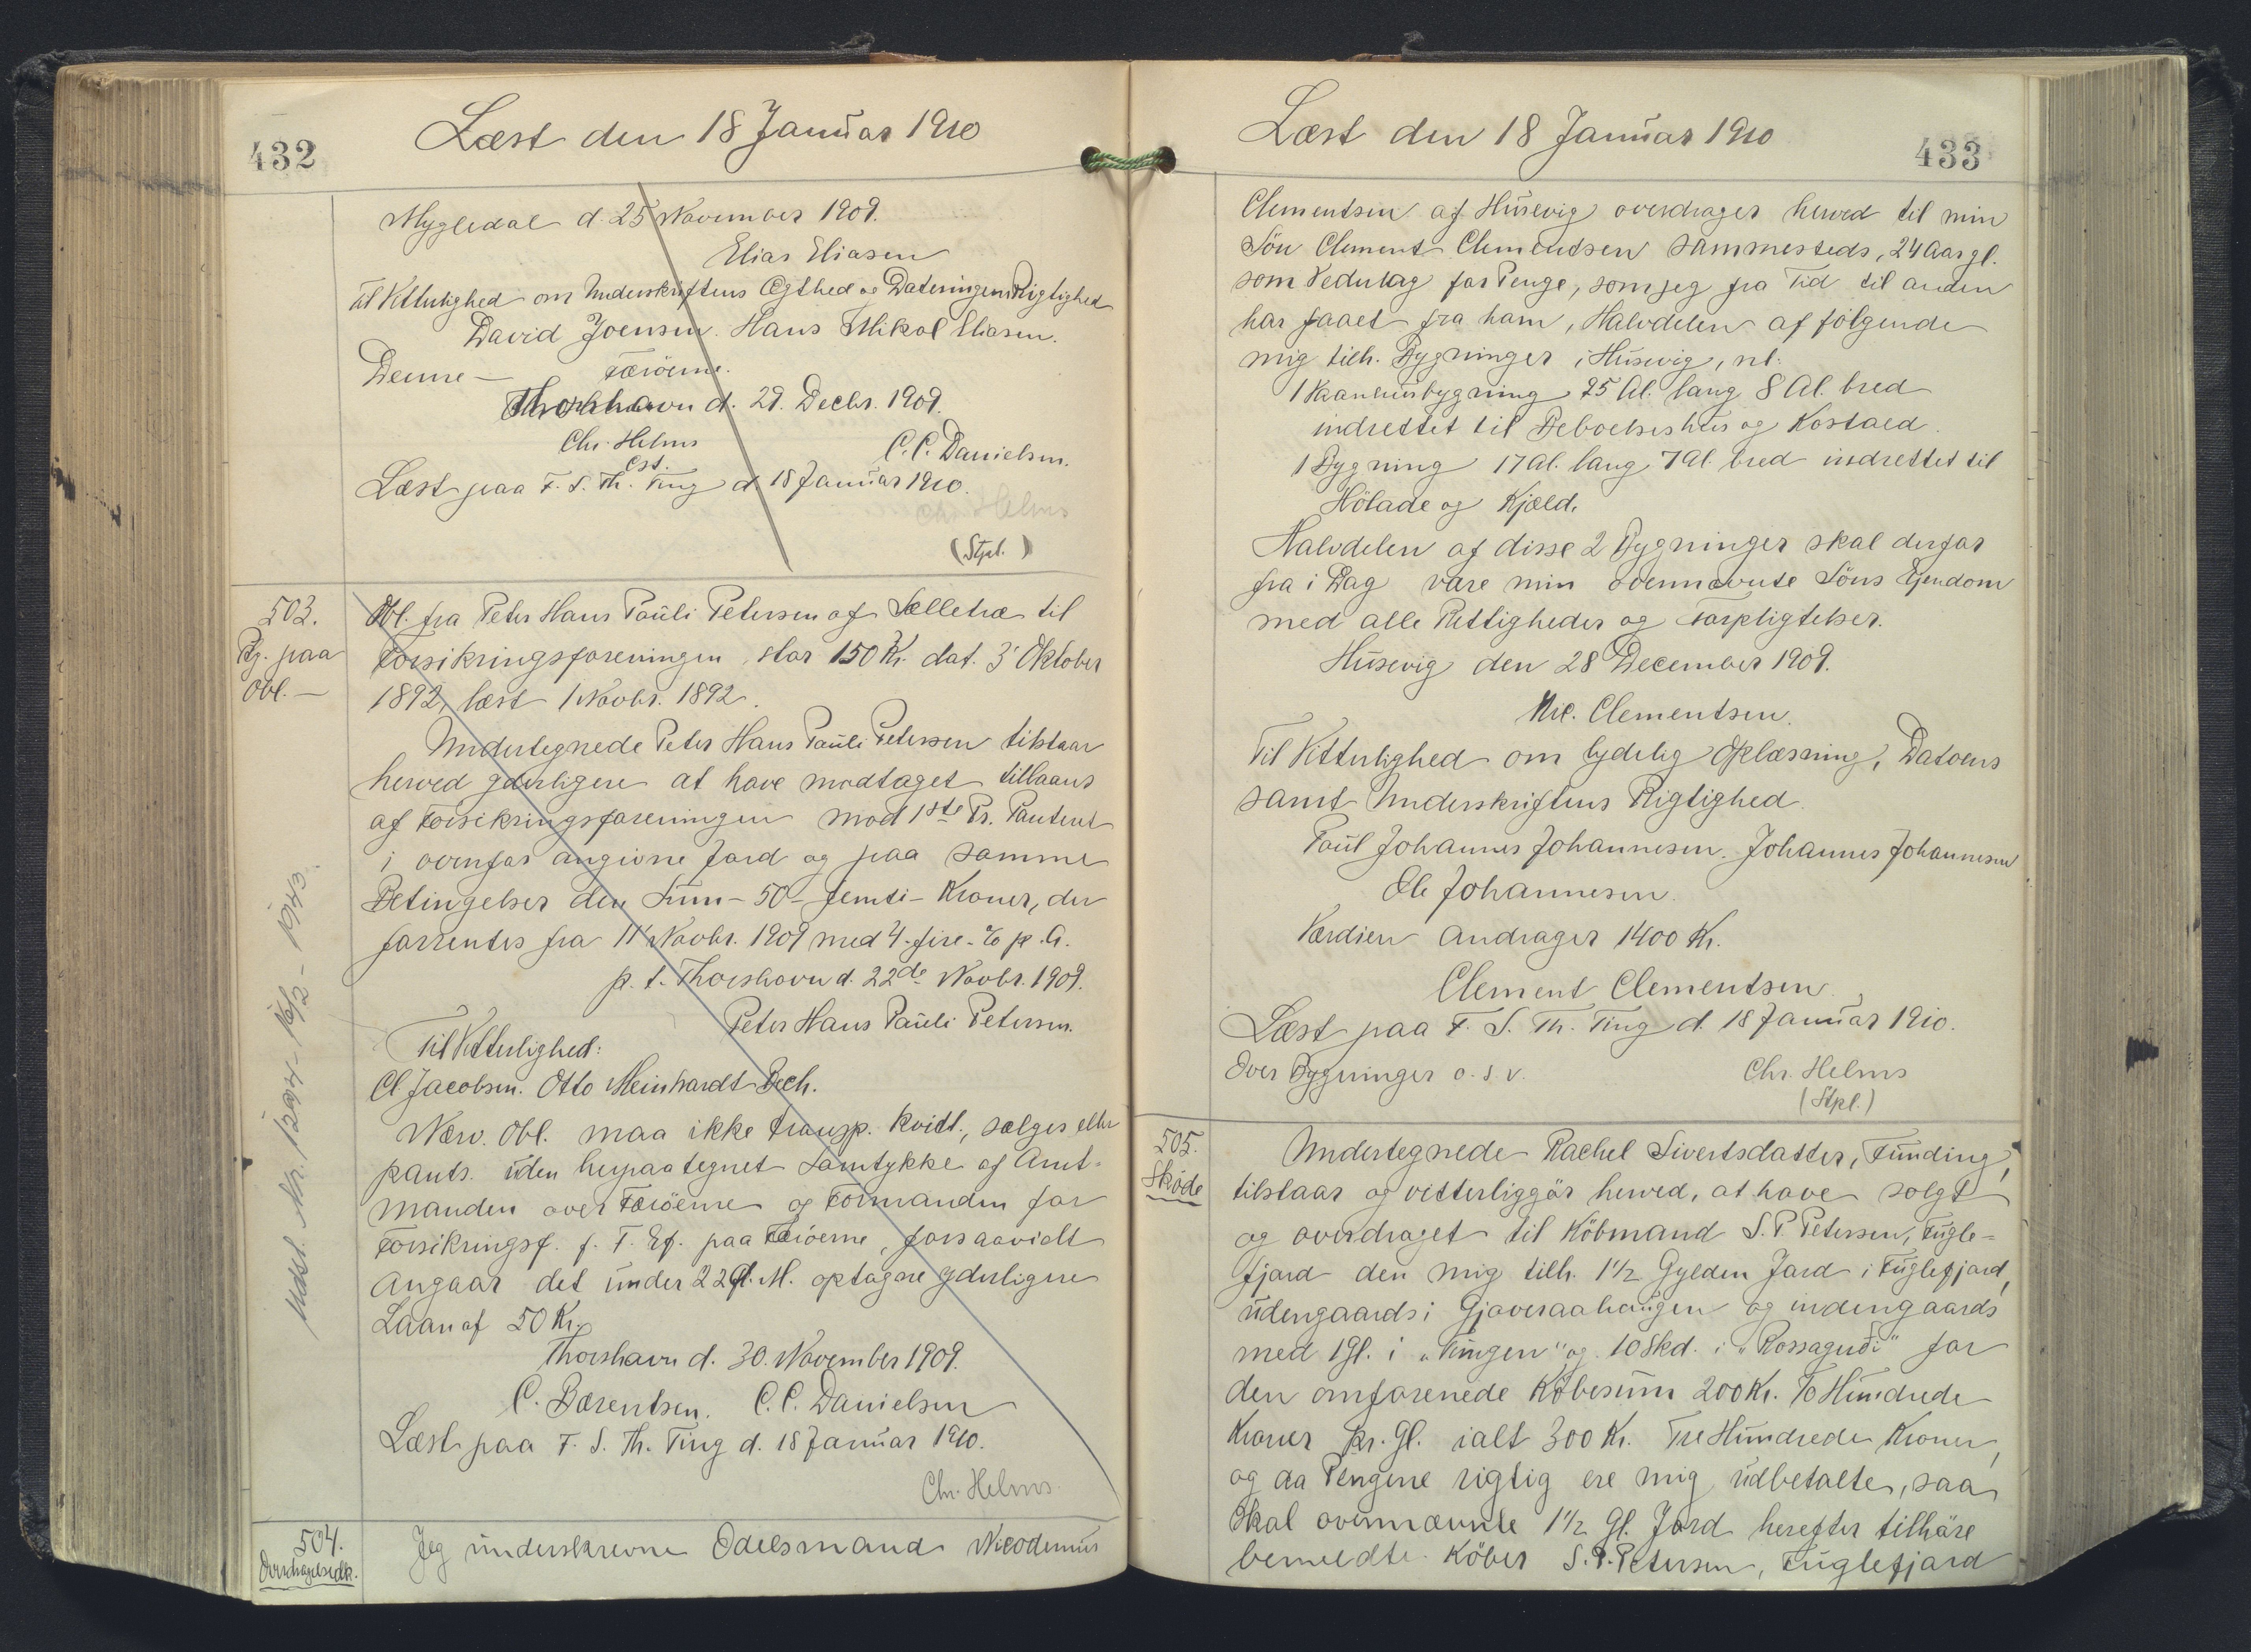 432
Læst den 18 Januar 1910
Mygledal d. 25 November 1909.
Elias Eliasen
Til Vitterlighed om Underskriftens Ægthed og Dateringens Rigtighed
David Joensen. Hans Mikal Eliasen.
Denne —
Færöerne.
Thorshavn d. 29. Decbr. 1909.
Chr. Helms
cst.
C.C. Danielsen.
Læst paa F. S. Th. Ting d. 18 Januar 1910.
Chr. Helms
(Stpl.)
503.
Pg. paa
Obl. —
Obl. fra Peter Hans Pauli Petersen af Selletræ til
Forsikringsforeningen, stor 150 Kr. dat. 3' Oktober
1892, læst 1 Novbr. 1892.
Undertegnede Peter Hans Pauli Petersen tilstaar
herved yderligere at have modtaget tillaans
af Forsikringsforeningen mod 1ste Pr. Panteret
i ovenfor angivne Jord og paa samme
Betingelser den Sum - 50 - femti - Kroner, der
forrentes fra 11' Novbr. 1909 med 4 - fire - % p. A.
p. t. Thorshavn d. 22de Novbr. 1909.
Peter Hans Pauli Petersen.
Til Vitterlighed:
Cl. Jacobsen. Otto Meinhardt Bech.
Nærv. Obl. maa ikke transp. kvitt., sælges eller
pants. uden herpaategnet Samtykke af Amt-
manden over Færöerne og Formanden for
Forsikringsf. f. F. Ef. paa Færöerne, forsaavidt
angaar det under 22 f. M. optagne yderligere
Laan af 50 Kr.
Thorshavn d. 30. November 1909.
C. Bærentsen. C.C. Danielsen
Læst paa F. S. Th. Ting d. 18 Januar 1910.
Chr. Helms.
Udsl. Nr. 1264 - 16/2 - 1943.
504.
Overdragelsedk.
Jeg underskrevne Odelsmand Nicodemus
433
Læst den 18 Januar 1910
Clementsen af Husevig overdrager herved til min
Sön Clement Clementsen sammesteds, 24 Aar gl.
som Vederlag for Penge, som jeg fra Tid til anden
har faaet fra ham, Halvdelen af fölgende
mig tilh. Bygninger i Husevig, nl:
1 Vaanhusbygning 25 Al. lang 8 Al. bred
indrettet til Beboelseshus og Kostald.
1 Bygning 17 Al. lang 7 Al. bred indrettet til
Hölade og Kjæld.
Halvdelen af disse 2 Bygninger skal derfor
fra i Dag være min ovennævnte Söns Ejendom
med alle Rettigheder og Forpligtelser.
Husevig den 28 December 1909.
Nic. Clementsen.
Til Vitterlighed om lydelig Oplæsning, Datoens
samt Underskriftens Rigtighed.
Poul Johannes Johannesen. Johannes Johannesen
Ole Johannesen.
Værdien andrager 1400 Kr.
Clement Clementsen
Læst paa F. S. Th. Ting d. 18 Januar 1910.
Over Bygninger o. s. v.
Chr. Helms
(Stpl.)
505.
Sköde
Undertegnede Rachel Sivertsdatter, Funding,
tilstaar og vitterliggör herved, at have solgt
og overdraget til Köbmand S. P. Petersen, Fugle-
fjord den mig tilh. 1 1/2 Gylden Jord i Fuglefjord,
udengaards i Gjoveraahaugen og indengaards
med 1 Gl. i "Tungen" og 10 Skd. i "Rossagerði" for
den omforenede Köbesum 200 Kr. To Hundrede
Kroner pr. Gl. ialt 300 Kr. Tre Hundrede Kroner,
og da Pengene rigtig ere mig udbetalte, saa
skal ovennævnte 1 1/2 Gl. Jord herefter tilhöre
bemeldte Köber S. P. Petersen, Fuglefjord